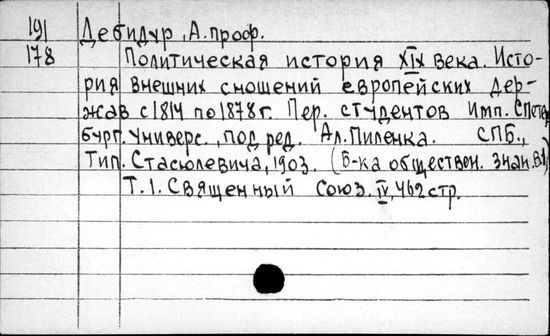 191 Дебидур, А. проф.
178 Политическая история XIX века. Исто-
рия внешних сношений европейских дер-
жав с 1814 по 1878 г. Пер. студентов Имп. Спетер
бург. Универс., под ред. Ал. Пиленка. СПБ.,
Тип. Стасюлевича, 1903. (Б-ка обществен. знан.
Т. 1. Священный союз. IV, 462 стр.